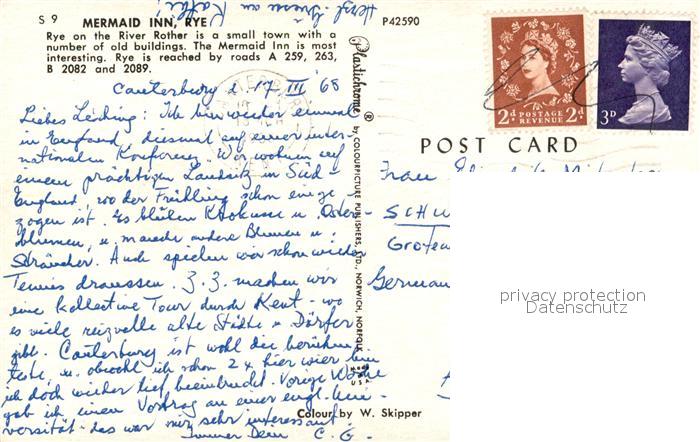 Herzl. Grüsse an Käthe!
S 9 MERMAID INN, RYE P42590
Rye on the River Rother is a small town with a
number of old buildings. The Mermaid Inn is most
interesting. Rye is reached by roads A 259, 263,
B 2082 and 2089.
Canterbury d. 17 III '68
Liebes : Ich bin wieder einmal
in England, diesmal auf einer inter-
nationalen Konferenz. Wir wohnen auf
einem prächtigen Landsitz in Süd-
England, wo der Frühling schon einge-
zogen ist. Es blühen Krokusse u. Oster-
blumen, u. manche andere Blumen u.
Sträucher. Auch spielen wir schon wieder
Tennis draussen. Z.Z. machen wir
eine kollektive Tour durch Kent - wo
es viele reizvolle alte Städte u. Dörfer
gibt. Canterbury ist wohl die berühm-
teste, u. obwohl ich schon 2 x hier war bin
ich doch wieder tief beeindruckt. Vorige Woche
gab ich einen Vortrag an einer engl. Uni-
versität - das war mir sehr interessant.
Immer Dein C. G.
Plastichrome ® by COLOURPICTURE PUBLISHERS, LTD., NORWICH, NORFOLK
MADE IN U S A
Colour by W. Skipper
2d POSTAGE REVENUE 2d
3D
POST CARD
Frau
SCHW
German
privacy protection
Datenschutz